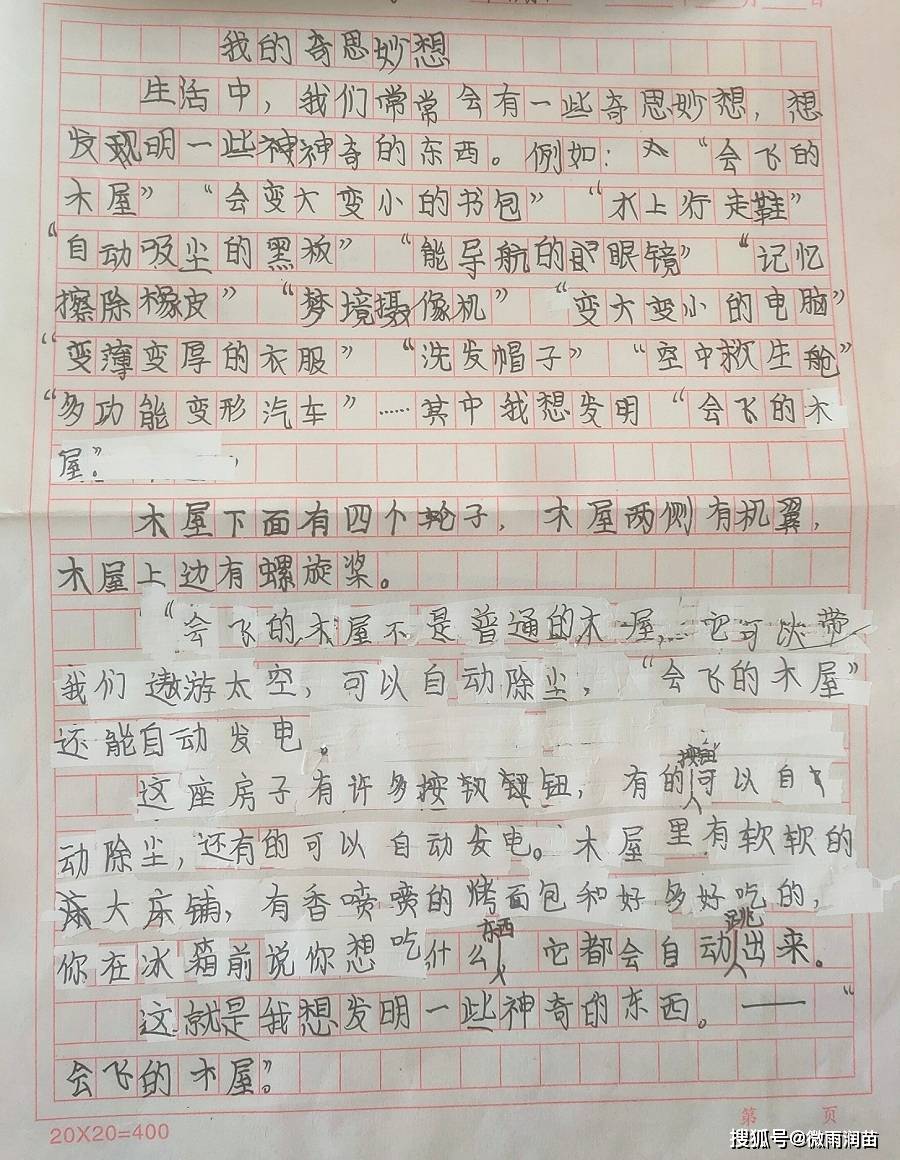 我的奇思妙想
生活中，我们常常会有一些奇思妙想，想
发现明一些神神奇的东西。例如："会飞的
木屋" "会变大变小的书包" "水上行走鞋"
"自动吸尘的黑板" "能导航的眼眼镜" "记忆
擦除橡皮" "梦境摄像机" "变大变小的电脑"
"变薄变厚的衣服" "洗发帽子" "空中救生舱"
"多功能变形汽车"……其中我想发明"会飞的木
屋"。
木屋下面有四个轮子，木屋两侧有机翼，
木屋上边有螺旋桨。
"会飞的木屋不是普通的木屋，它可以带
我们遨游太空，可以自动除尘，"会飞的木屋"
还能自动发电。
这座房子有许多按钮，有的按钮可以自
动除尘，还有的可以自动发电。木屋里有软软的
大床铺，有香喷喷的烤面包和好多好吃的，
你在冰箱前说你想吃什么东西它都会自动跳出来。
这就是我想发明一些神奇的东西。——"
会飞的木屋"。
20X20=400
第 页
搜狐号@微雨润苗